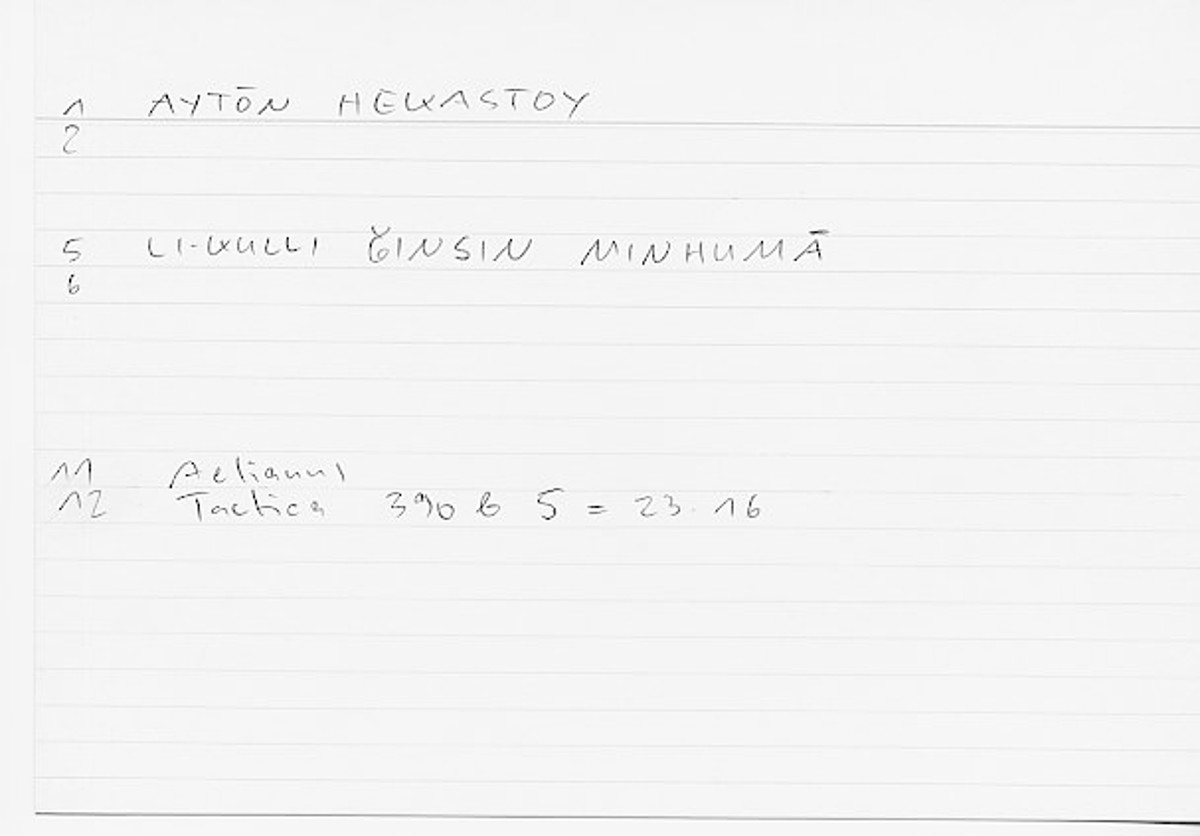 1 AYTŌN HEKASTOY
2
5 LI-KULLI ǦINSIN MINHUMĀ
6
11 Aelianus
12 Tactica 390 b 5 = 23.16